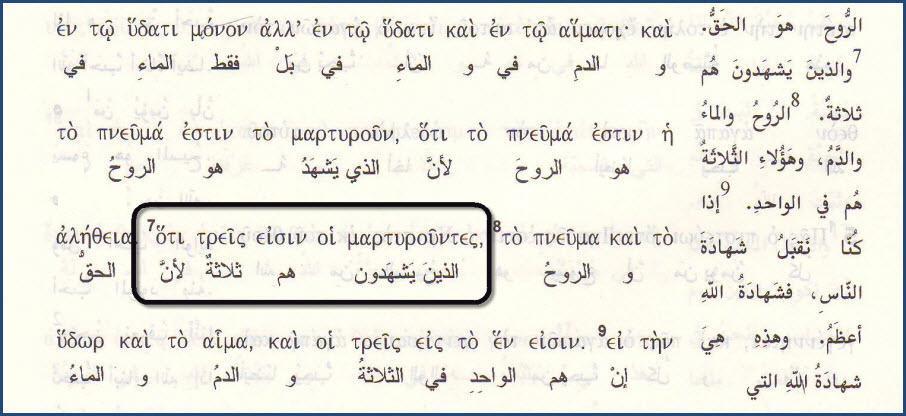 ἐν τῷ ὕδατι μόνον ἀλλ’ ἐν τῷ ὕδατι καὶ ἐν τῷ αἵματι· καὶ
في الماءِ فقط بَلْ في الماءِ و في الدمِ و
τὸ πνεῦμά ἐστιν τὸ μαρτυροῦν, ὅτι τὸ πνεῦμά ἐστιν ἡ
الروحُ هو الذي يَشهَدُ لأنَّ الروحَ هو
ἀλήθεια. ⁷ὅτι τρεῖς εἰσιν οἱ μαρτυροῦντες, ⁸τὸ πνεῦμα καὶ τὸ
الحقُّ لأنَّ ثلاثةٌ هم الذين يَشهَدون الروحُ و
ὕδωρ καὶ τὸ αἷμα, καὶ οἱ τρεῖς εἰς τὸ ἕν εἰσιν. ⁹εἰ τὴν
الماءُ و الدمُ و الثلاثةُ في الواحدِ هم إنْ
الرُّوحَ هوَ الحَقُّ.
⁷والذينَ يَشهَدونَ هُم
ثلاثةٌ. ⁸الرُّوحُ والماءُ
والدَّمُ، وهَؤُلاءِ الثَّلاثَةُ
هُم في الواحدِ. ⁹إذا
كُنَّا نَقبَلُ شَهادَةَ
النَّاسِ، فشَهادَةُ اللَّهِ
أعظَمُ. وهذهِ هِيَ
شهادَةُ اللَّهِ التي